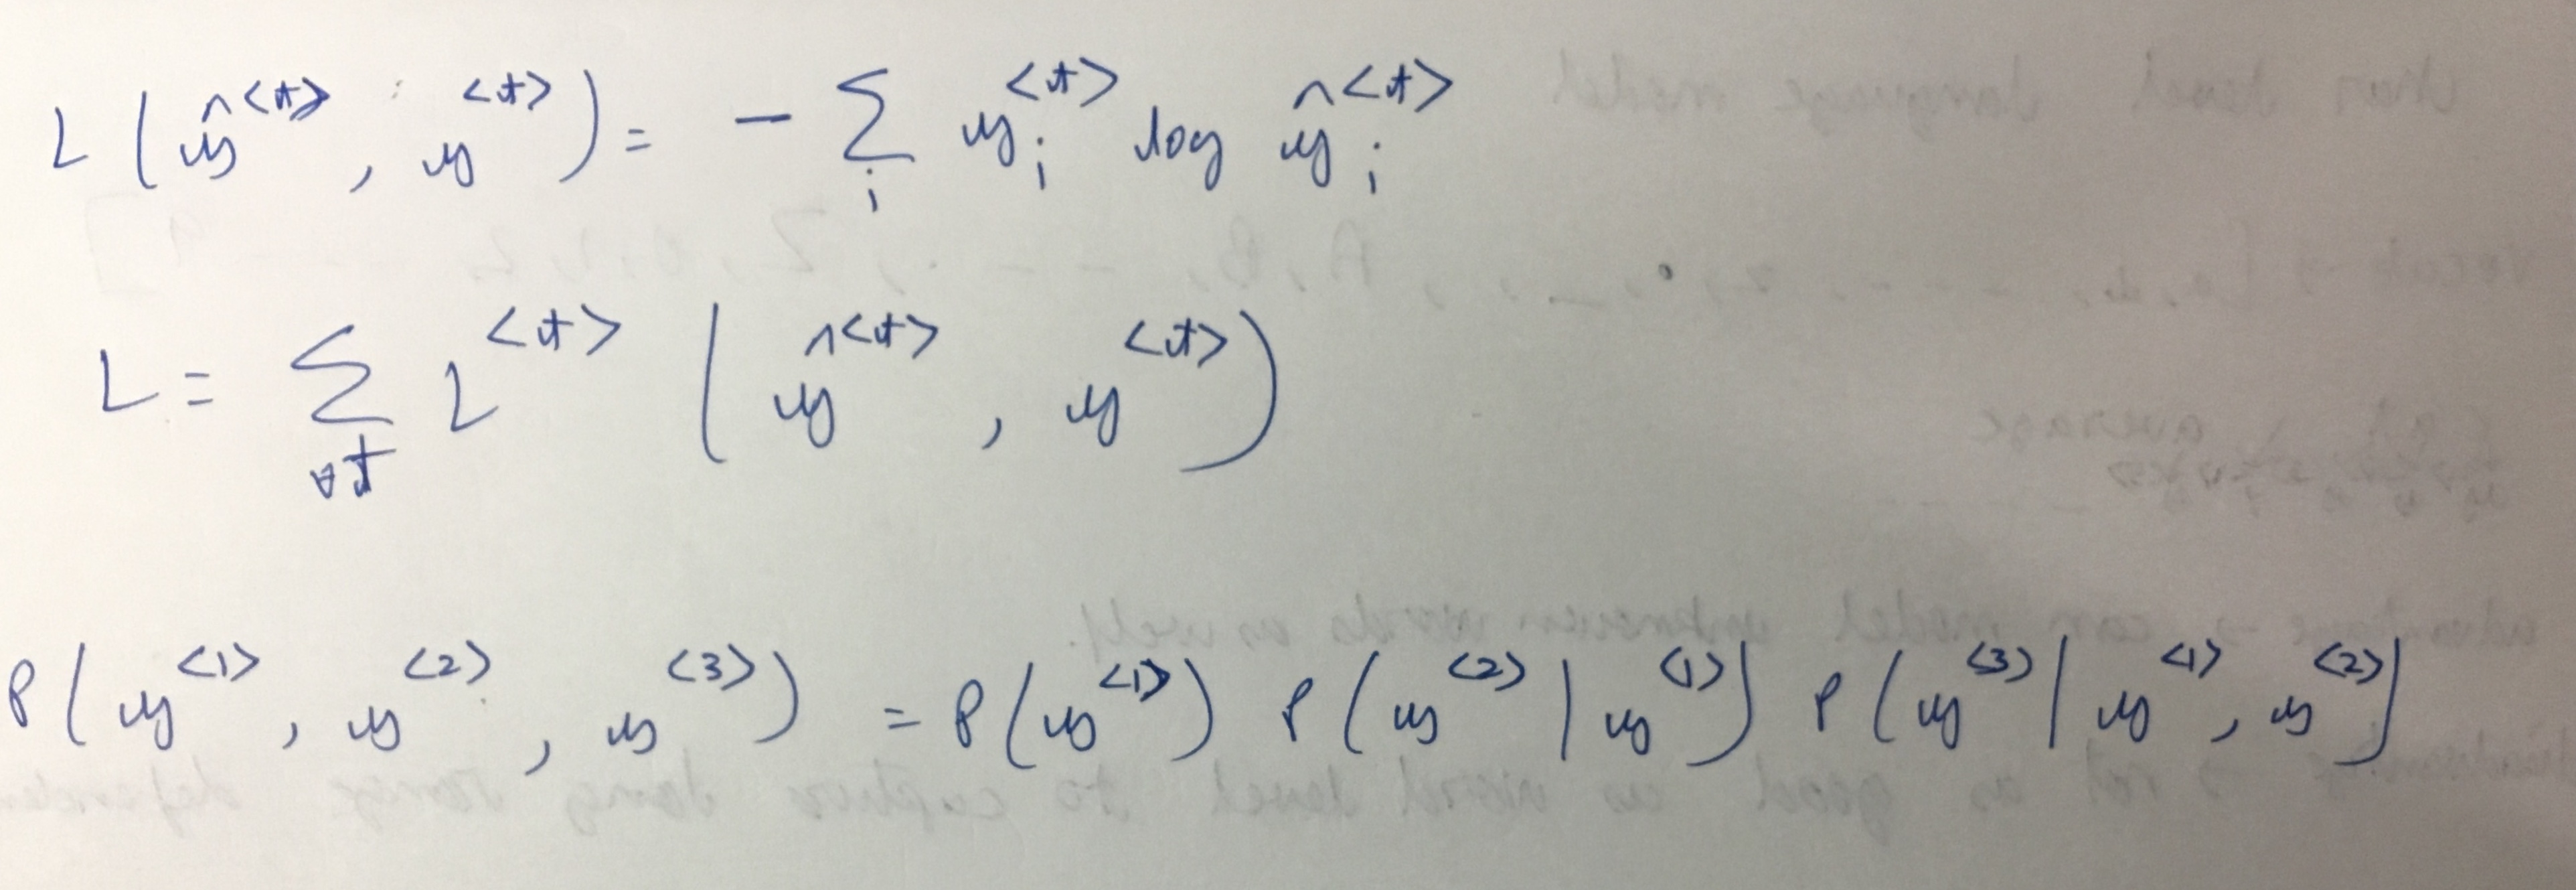 L(ŷ^<t>, y^<t>) = - Σ_i y_i^<t> log ŷ_i^<t>
L = Σ_∀t L^<t> (ŷ^<t>, y^<t>)
P(y^<1>, y^<2>, y^<3>) = P(y^<1>) P(y^<2> | y^<1>) P(y^<3> | y^<1>, y^<2>)